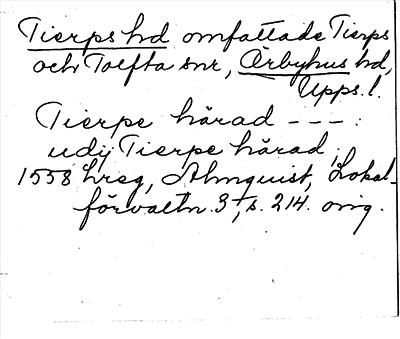 Tierps hd omfattade Tierps
och Tolfta snr, Örbyhus hd,
Upps. l.
Tierpe härad --- :
udij Tierpe härad;
1558 Lreg, Almquist, Lokal-
förvaltn. 3, s. 214. orig.